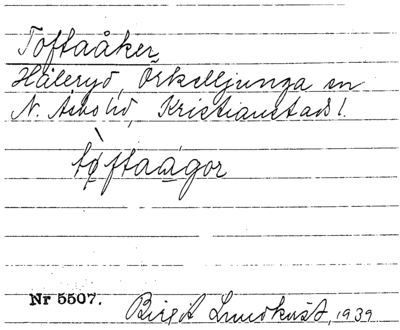 Toftaåker
Håleryd, Örkelljunga sn
N. Åsbo hd, Kristianstads l.
tǫ̀ftaagor
Nr 5507.
Birgit Lundkvist, 1939